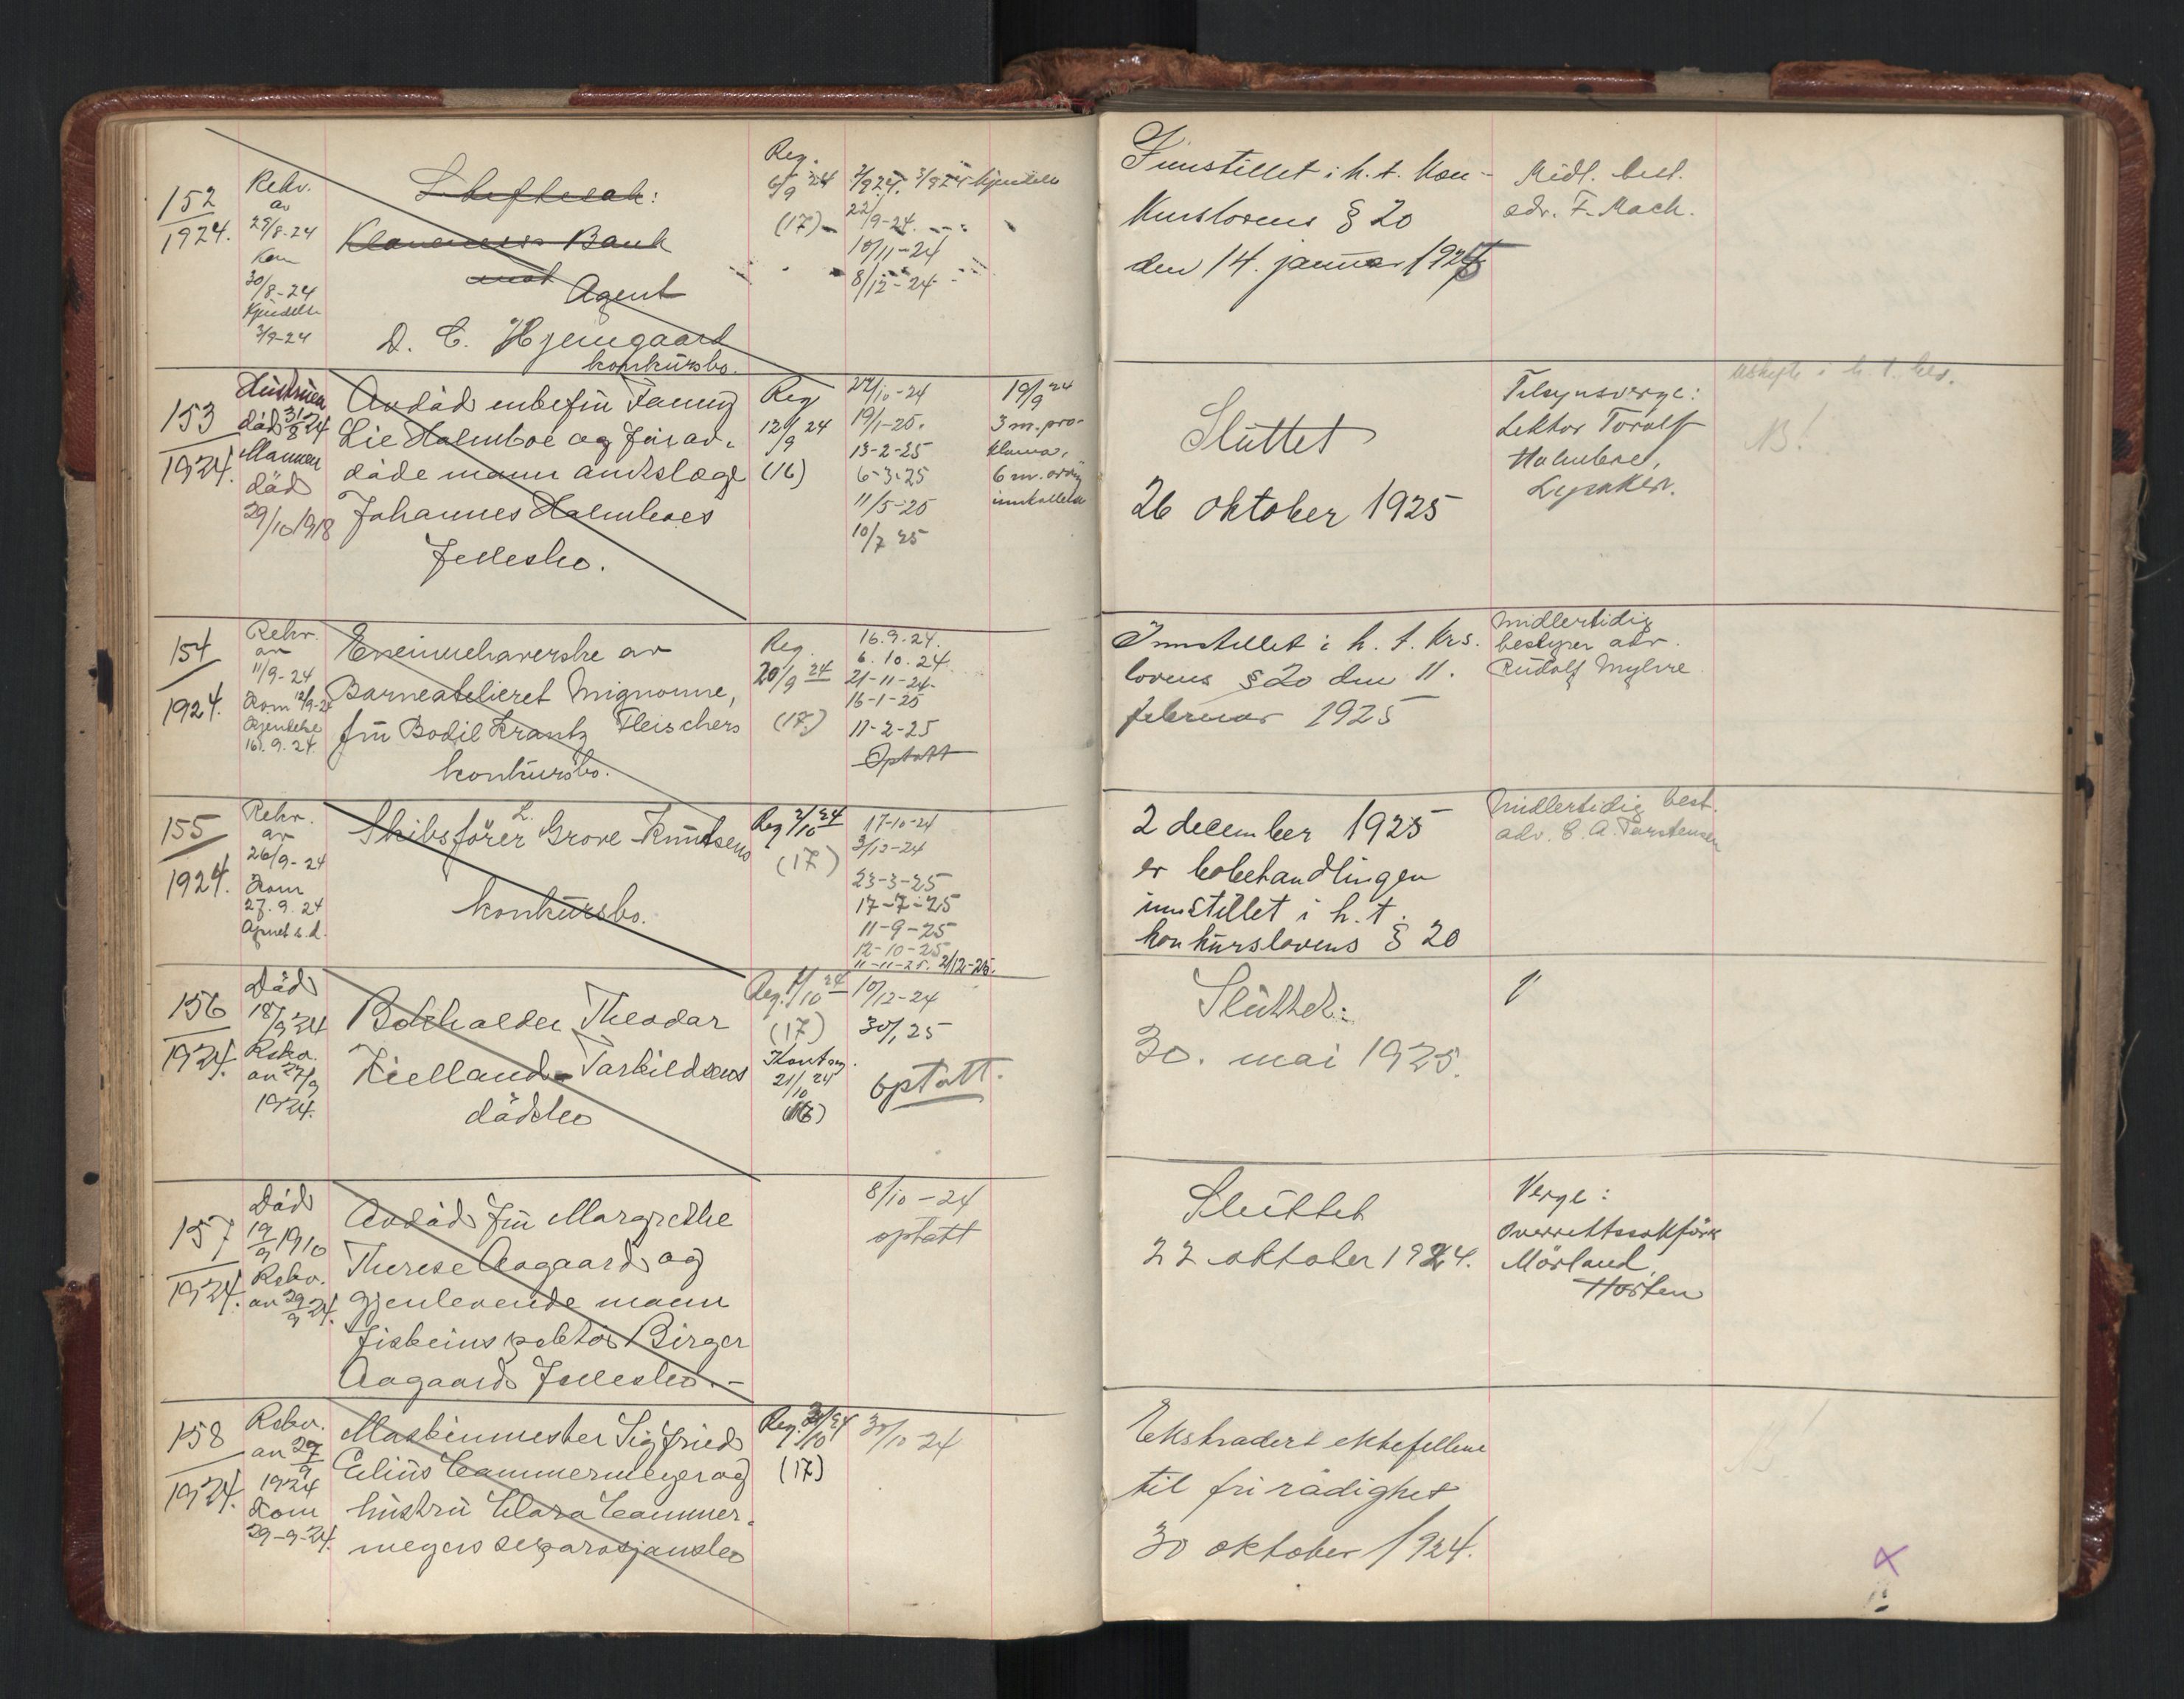 152
1924.
Rekv.
av
29/8-24
Kom
30/8-24
Kjendelse
3/9-24
Skiftesak:
Bank
mot Agent
D. C. Hjemgaard
konkursbo.
Reg.
6/9 24
(17)
22/9-24.
10/11-24
8/12-24
Innstillet i h. t. Kon-
kurslovens § 20
den 14. januar 1925
Midl. best.
adr. F. Mack.
153
1924.
Hustruen
död 31/8 24
Mannen
död
29/10 1918
Avdöd enkefru Fanny
Lie Holmboe og för av-
döde mann amtslæge
Johannes Holmboes
fellesbo.
Reg
12/9 24
(16)
27/10-24
19/1-25.
13-2-25
6-3-25
11/5-25
10/7 25
19/9 24
3 m. pro-
klama,
6 m.
innkallelse
Sluttet
26 oktober 1925
Tilsynsverge:
Lektor Torolf
Holmboe,
Lysaker.
i h. t. bes.
NB!
154
1924.
Rekv.
av
11/9-24
Kom 12/9-24
Kjendelse
16.9.24.
Eneinnehaverske av
Barneatelieret Mignonne,
fru Bodil Krantz Fleischers
konkursbo.
Reg.
20/9 24
(17.)
16.9.24.
6.10.24.
21-11-24-
16-1-25
11-2-25
Optatt
Innstillet i h. t. krs.
lovens § 20 den 11.
februar 1925
Midlertidig
bestyrer adv.
Rudolf Myhre
155
1924.
Rekv.
av
26/9-24
Kom
27.9.24
Åpnet s.d.
L.
Skibsförer Grove-Knutsens
konkursbo.
Reg 2/10 24
(17)
17-10-24
3/12-24
23-3-25
17-7-25
11-9-25
12-10-25
11-11-25. 2/12-25.
2 december 1925
er bobehandlingen
innstillet i h. t.
konkurslovens § 20
Midlertidig best.
adv. C. A. Torstensen
156
1924.
Död
18/9 24
Rekv.
av 27/9
1924.
Bokholder Theodor
Kielland-Torkildsens
dödsbo
Reg. 4/10 24
(17)
21/10 24
(16)
10/12-24
30/1 25
optatt.
Sluttet:
30. mai 1925.
V
157
1924.
Död
19/9 1910
Rekv.
av 29/9 24.
Avdöd fru Margrethe
Therese Aagaard og
gjenlevende mann
fiskeinspektör Birger
Aagaards fellesbo.-
8/10-24
optatt
Sluttet
22 oktober 1924.
Verge:
Overrettssakförer
Mörland,
Horten
158
1924.
Rekv.
av 27/9
1924
Kom
29-9-24.
Maskinmester Sigfried
Elius Cammermeyer og
hustru Clara Cammer-
meyers separasjonsbo
Reg. 30/10 24
(17)
30/10 24
Ekstradert ektefellene
til fri rådighet
30 oktober 1924.
X